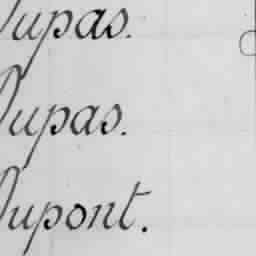 Dupas.
Dupas.
Dupont.